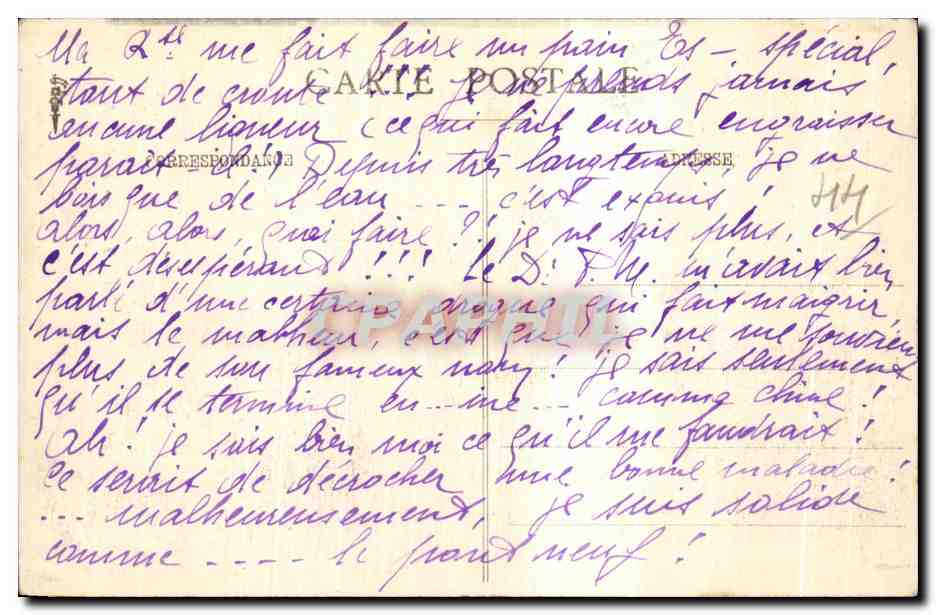 Ma Rte me fait faire un pain Es - spécial,
CARTE POSTALE
tout de croute !!! Je ne prends jamais
aucune liqueur (ce qui fait encore engraisser
CORRESPONDANCE
ADRESSE
parait-il !) Depuis très longtemps, je ne
bois que de l'eau ---- c'est exquis !
44
alors, alors, quoi faire ?! je ne sais plus, et
c'est désespérant !!! Le Dr P.M. m'avait bien
parlé d'une certaine drogue qui fait maigrir,
CPAPHIL
mais le malheur, c'est que je ne me souviens
plus de son fameux nom ! je sais seulement
qu'il se termine en --- ine --- comme chine !
Ah ! je sais bien moi ce qu'il me faudrait !
Ce serait de décrocher une bonne maladie !
--- malheureusement, je suis solide
comme ---- le pont neuf !